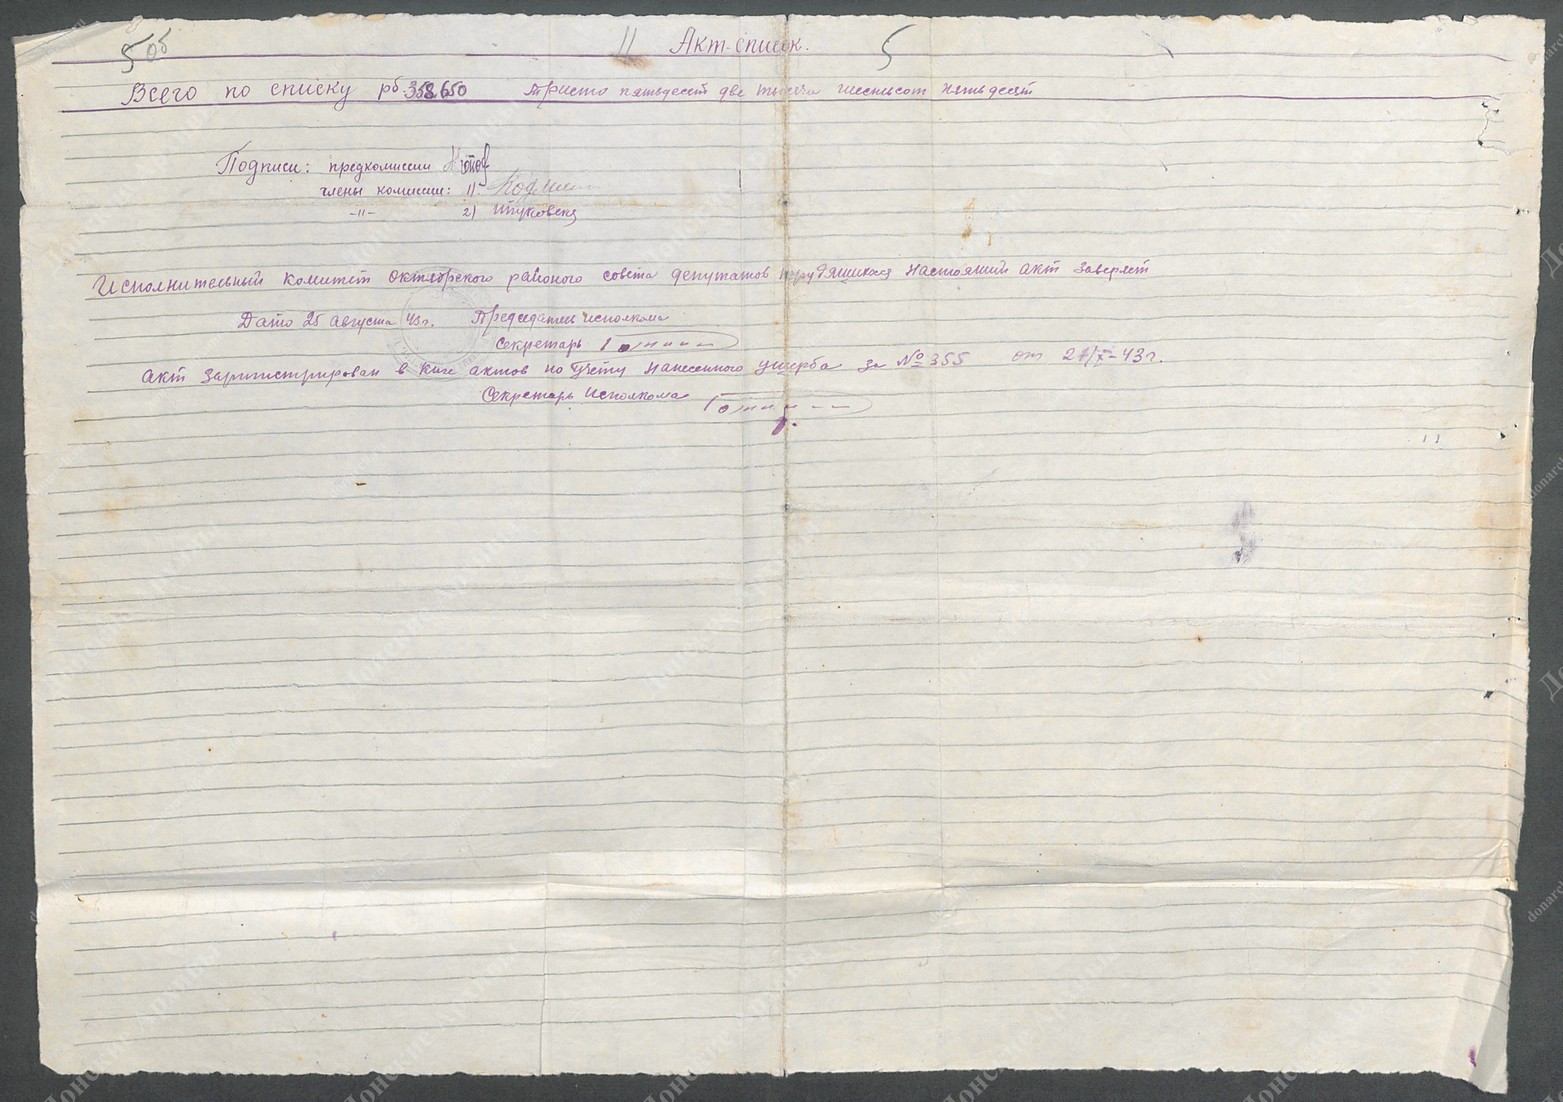 5 об 11 Акт-список. 5
Всего по списку рб. 358650 Триста пятьдесят две тысяча шестьсот пятьдесят
Подписи: предкомиссии
члены комиссии: 1).
-"- 2)
Исполнительный комитет Октябрского районого совета депутатов трудящихся настоящий акт заверяет
Дата 25 августа 43г. Председатель исполкома
Секретарь
Акт зарегистрирован в книге актов по учёту нанесенного ущерба за № 355 от 21/X-43 г.
Секретарь исполкома